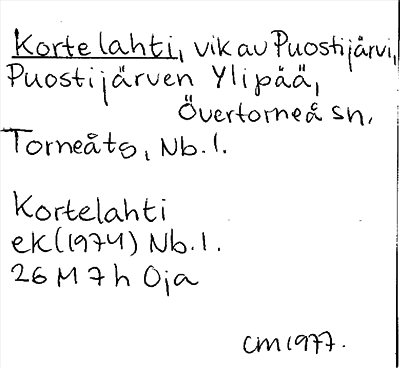 Kortelahti, vik av Puostijärvi,
Puostijärven Ylipää,
Övertorneå sn.
Torneåtg, Nb. l.
Kortelahti
ek (1974) Nb. l.
26 M 7 h Oja
CM 1977.